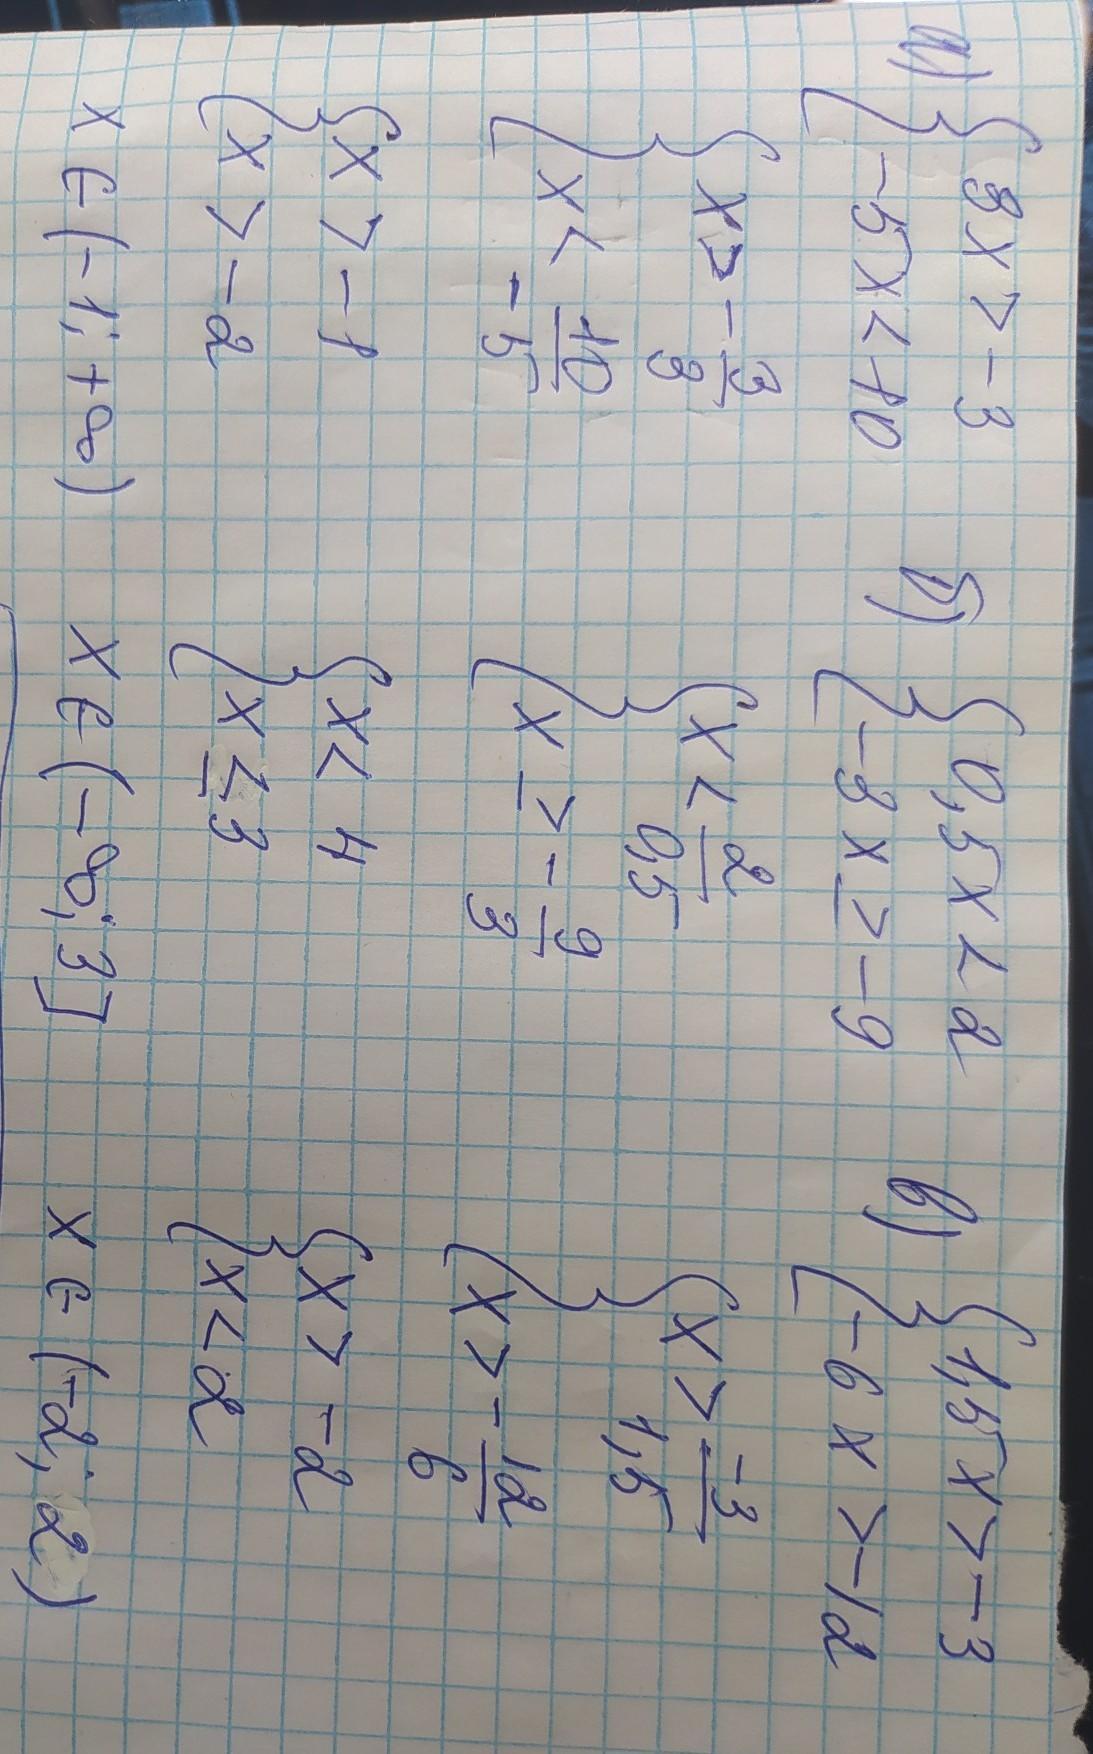 а) { 3x > -3
{ -5x < 10
{ x > - 3/3
{ x < 10/-5
{ x > -1
{ x > -2
x ∈ (-1; +∞)
б) { 0,5x < 2
{ -3x ≥ -9
{ x < 2/0,5
{ x ≥ - 9/3
{ x < 4
{ x ≤ 3
x ∈ (-∞; 3]
в) { 1,5x > -3
{ -6x > -12
{ x > -3/1,5
{ x > - 12/6
{ x > -2
{ x < 2
x ∈ (-2; 2)